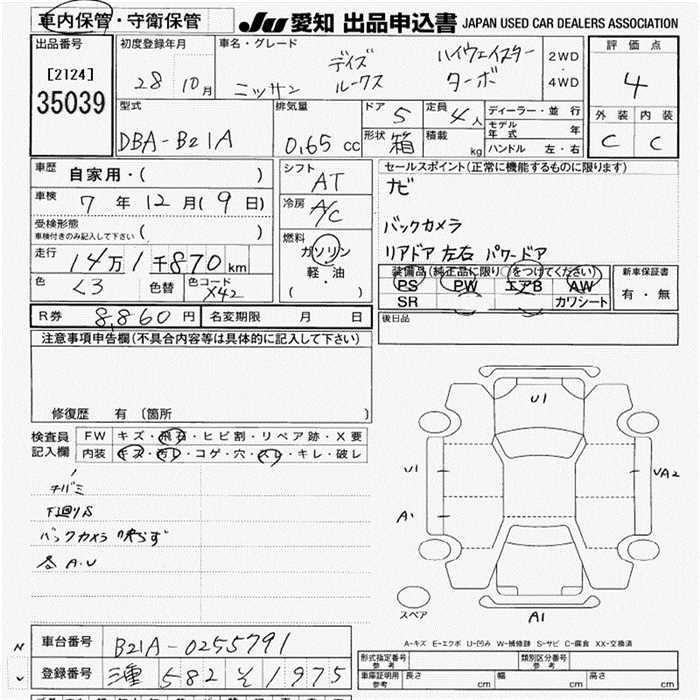 車内保管・守衛保管
JU 愛知 出品申込書 JAPAN USED CAR DEALERS ASSOCIATION
出品番号
[2124]
35039
初度登録年月
28 10月
車名・グレード
ニッサン デイズ ルークス ハイウェイスター ターボ
2WD
・
4WD
評価点
4
外装 内装
C C
型式
DBA-B21A
排気量
0.65 cc
ドア 5
形状 箱
定員 4人
積載 kg
ディーラー・並行
モデル年式 年
ハンドル 左・右
車歴 自家用・( )
車検 7年12月(9日)
受検形態
車検付きのみ記入して下さい ( )
走行 14万1千870km
色 くろ 色替 色コード X42
シフト AT
冷房 A/C
燃料
ガソリン
軽・油
( ・ )
セールスポイント(正常に機能するものに限ります)
ナビ
バックカメラ
リアドア 左右 パワードア
装備品(純正品に限り○をつけてください)
PS PW エアB AW
SR カワシート
新車保証書
有・無
R券 8,860円 名変期限 月 日
後日品
注意事項申告欄(不具合内容等は具体的に記入して下さい)
修復歴 有 〔箇所 〕
検査員記入欄
FW キズ・飛石・ヒビ割・リペア跡・X要
内装 キズ・汚レ・コゲ・穴・スレ・キレ・破レ
チバミ
下廻りS
バックカメラ 映らず
各A.U
U1
U1
A1
UA2
A1
スペア
A-キズ E-エクボ U-凹み W-補修跡 S-サビ C-腐食 XX-交換済
車台番号 B21A-0255791
登録番号 三重 582 そ 1975
形式指定番号 参考
類別区分番号 参考
車庫証明用 参考 長さ cm 幅 cm 高さ cm